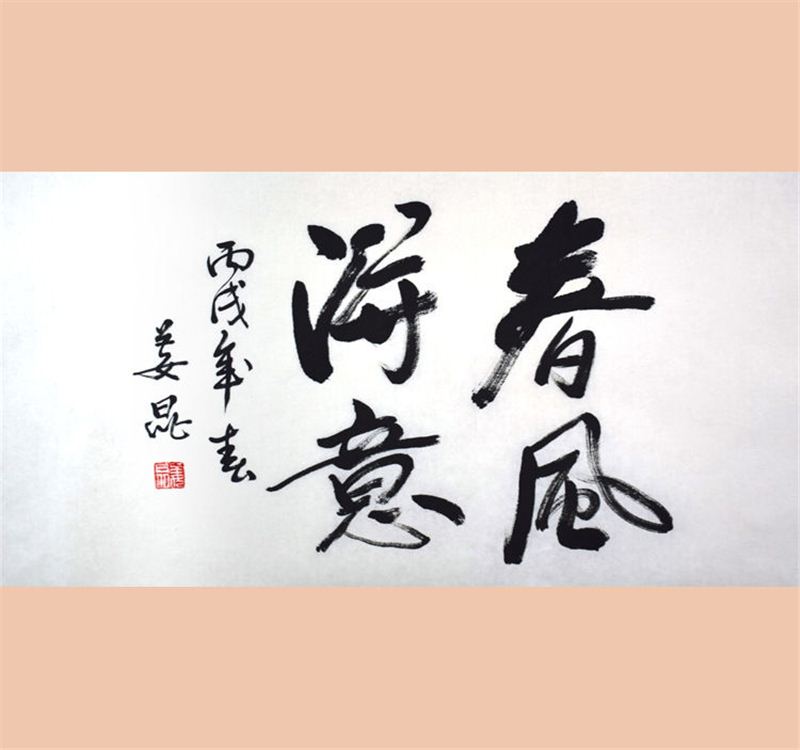 春風
得意
丙戌年春
姜昆
姜昆